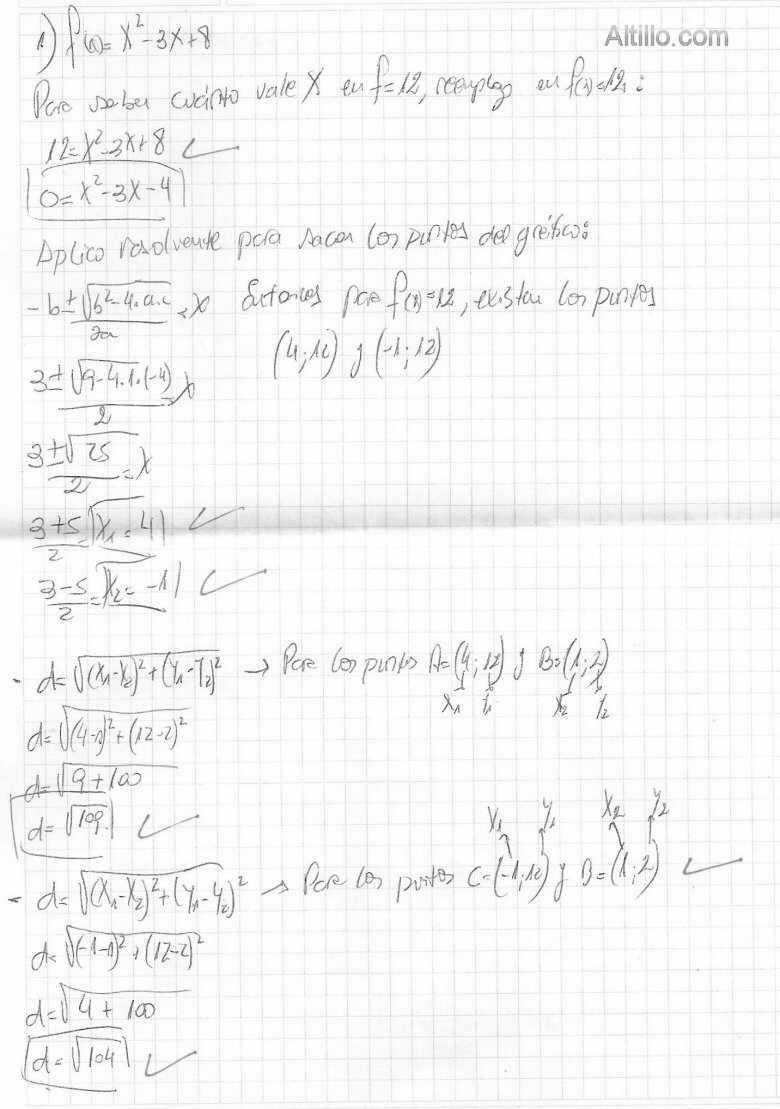 Altillo.com
1) f(x)= x²-3x+8
Para saber cuánto vale X en f=12, reemplazo en f(x)=12:
12=x²-3x+8
0=x²-3x-4
Aplico resolvente para sacar los puntos del gráfico:
-b±√b²-4.a.c / 2a = x
Entonces para f(x)=12, existen los puntos
(4;12) y (-1;12)
3±√9-4.1.(-4) / 2 = x
3±√25 / 2 = x
3+5 / 2 = x₁=4
3-5 / 2 = x₂=-1
- d=√(x₁-x₂)²+(y₁-y₂)² → Para los puntos A=(4;12) y B=(1;2)
x₁ y₁ x₂ y₂
d=√(4-1)²+(12-2)²
d=√9+100
d=√109
x₁ y₁ x₂ y₂
- d=√(x₁-x₂)²+(y₁-y₂)² → Para los puntos C=(-1;12) y B=(1;2)
d=√(-1-1)²+(12-2)²
d=√4+100
d=√104